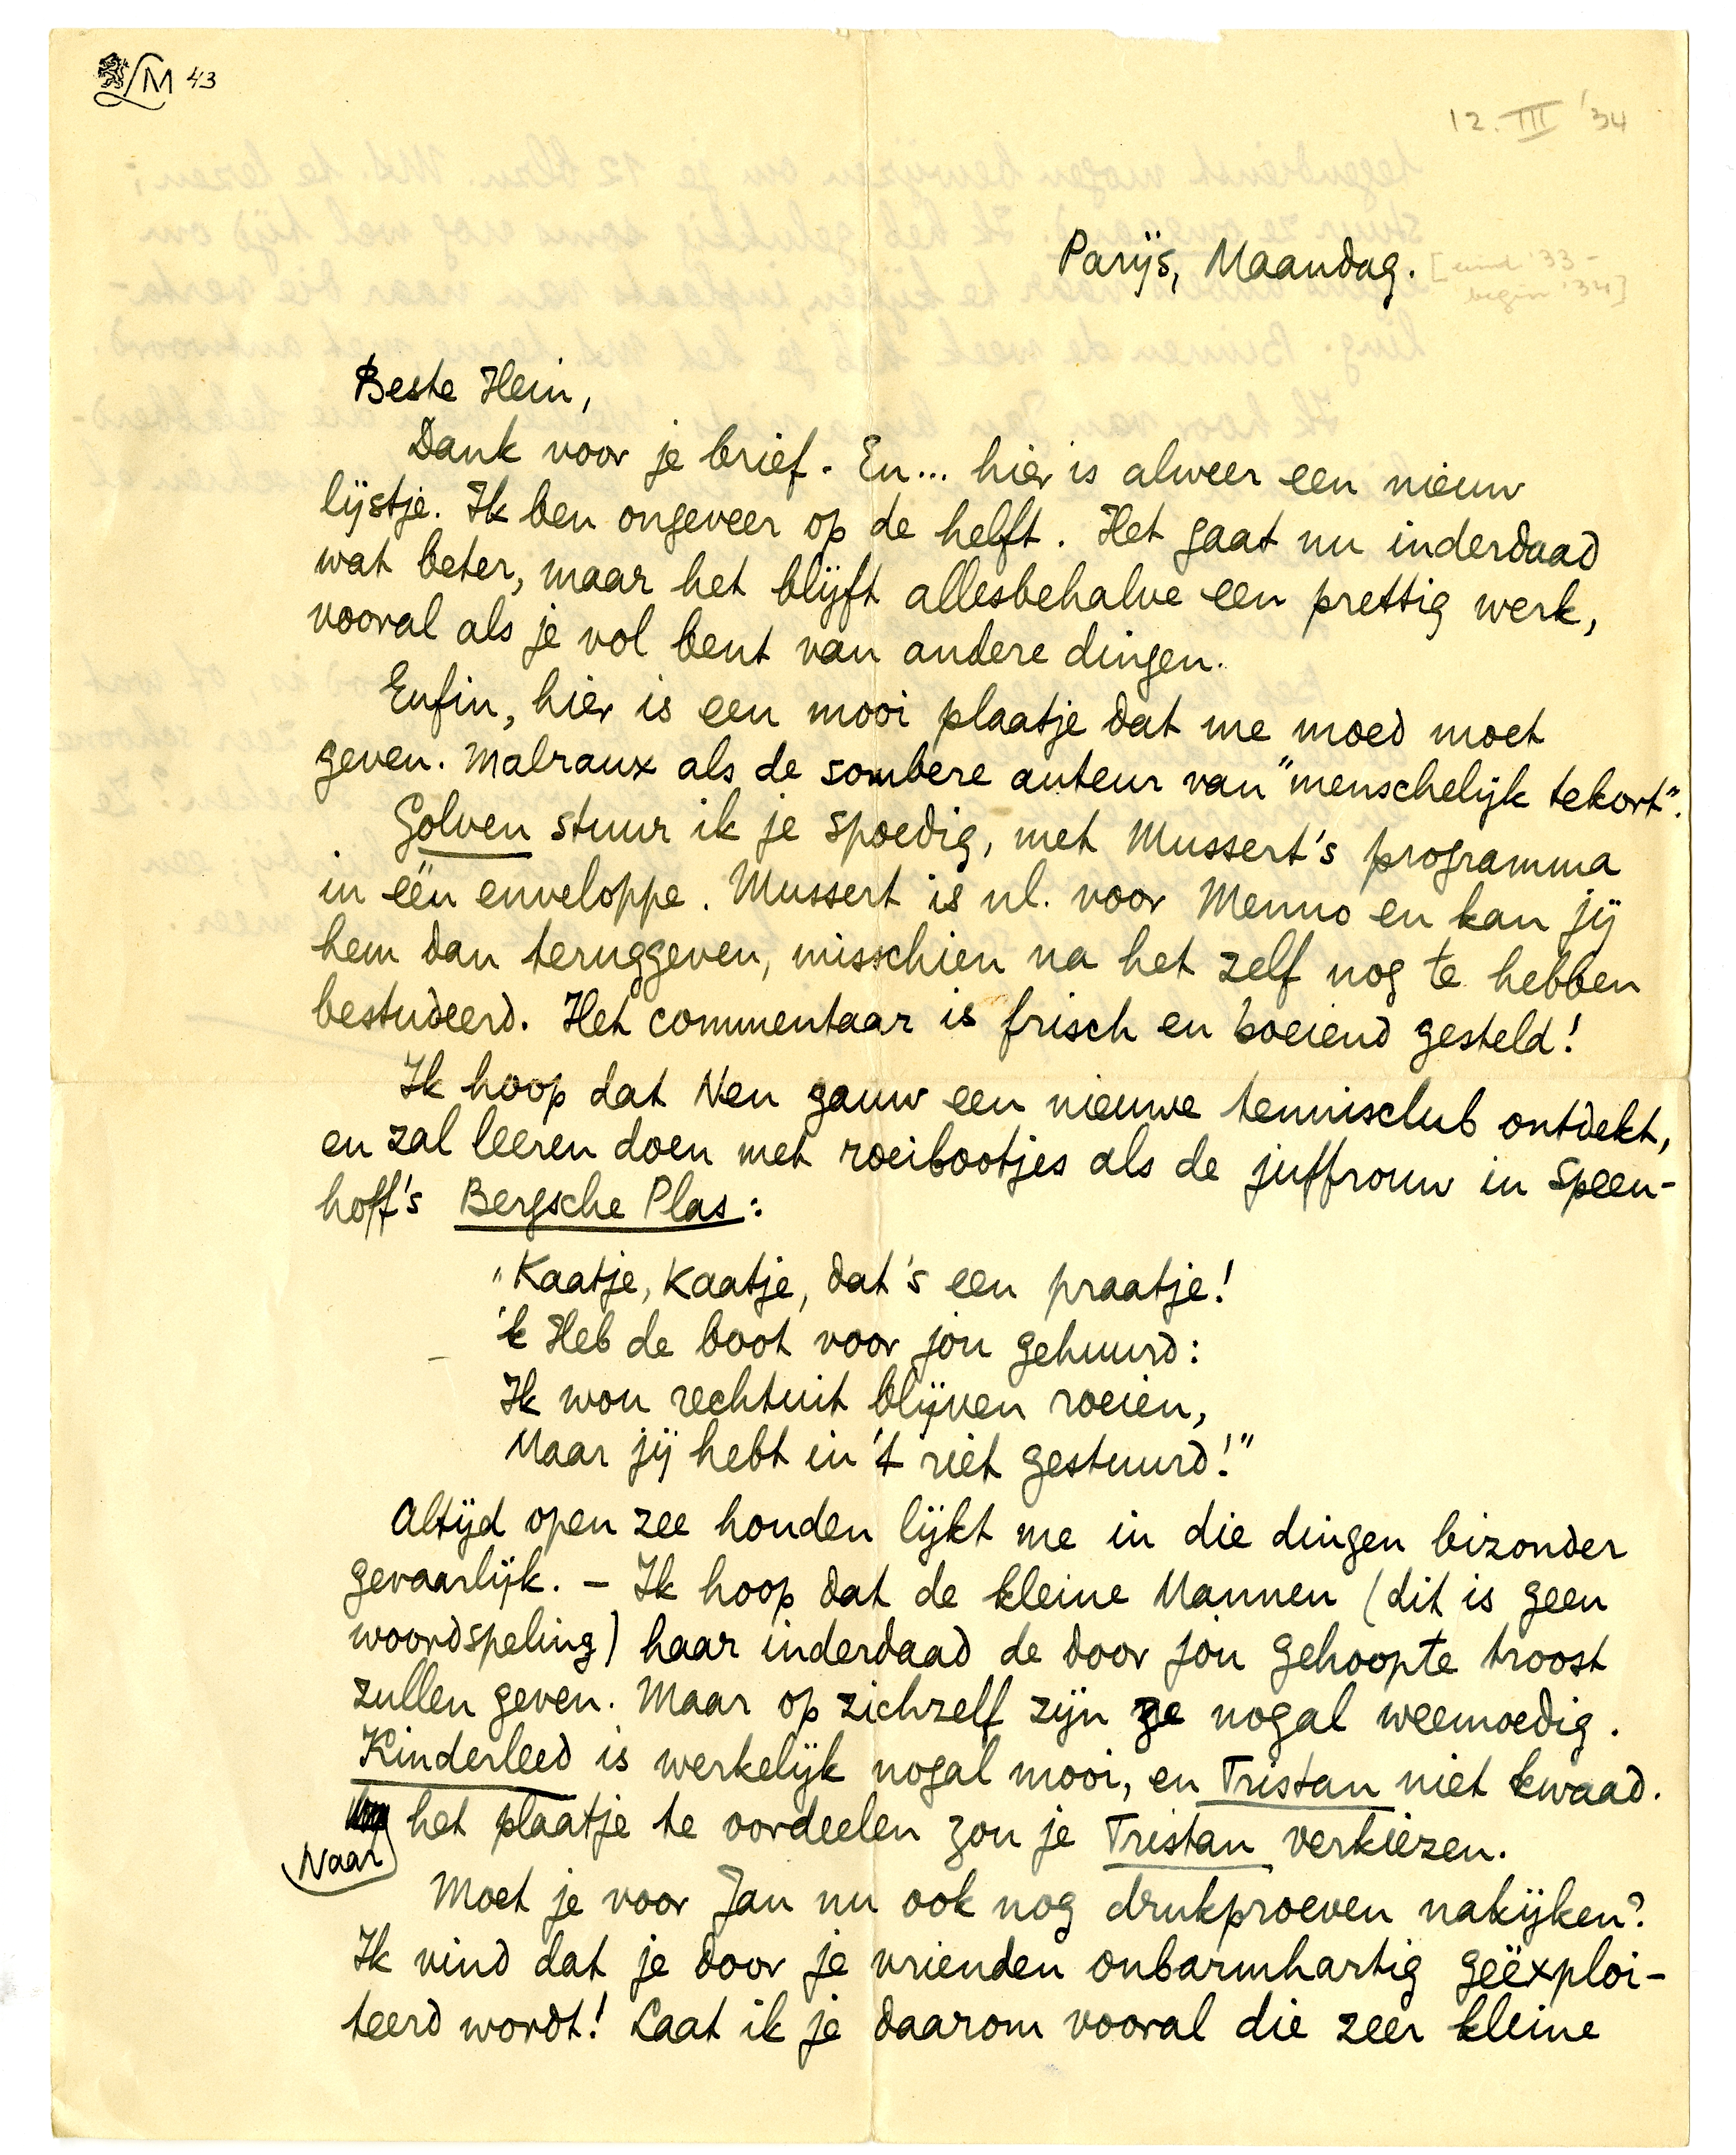 LM 43
12. III '34
Parijs, Maandag.
[eind '33 -
begin '34]
Beste Hein,
Dank voor je brief. En... hier is alweer een nieuw
lijstje. Ik ben ongeveer op de helft. Het gaat nu inderdaad
wat beter, maar het blijft allesbehalve een prettig werk,
vooral als je vol bent van andere dingen.
Enfin, hier is een mooi plaatje dat me moed moet
geven. Malraux als de sombere auteur van "menschelijk tekort".
Golven stuur ik je spoedig, met Mussert's programma
in één enveloppe. Mussert is nl. voor Menno en kan jij
hem dan teruggeven, misschien na het zelf nog te hebben
bestudeerd. Het commentaar is frisch en boeiend gesteld!
Ik hoop dat Nen gauw een nieuwe tennisclub ontdekt,
en zal leeren doen met roeibootjes als de juffrouw in Speen-
hoff's Bergsche Plas:
"Kaatje, Kaatje, dat's een praatje!
'k Heb de boot voor jou gehuurd:
Ik wou rechtuit blijven roeien,
Maar jij hebt in 't riet gestuurd!"
Altijd open zee houden lijkt me in die dingen bizonder
gevaarlijk. – Ik hoop dat de kleine Mannen (dit is geen
woordspeling) haar inderdaad de door jou gehoopte troost
zullen geven. Maar op zichzelf zijn ze nogal weemoedig.
Kinderleed is werkelijk nogal mooi, en Tristan niet kwaad.
Naar het plaatje te oordeelen zou je Tristan verkiezen.
Moet je voor Jan nu ook nog drukproeven nakijken?
Ik vind dat je door je vrienden onbarmhartig geëxploi-
teerd wordt! Laat ik je daarom vooral die zeer kleine